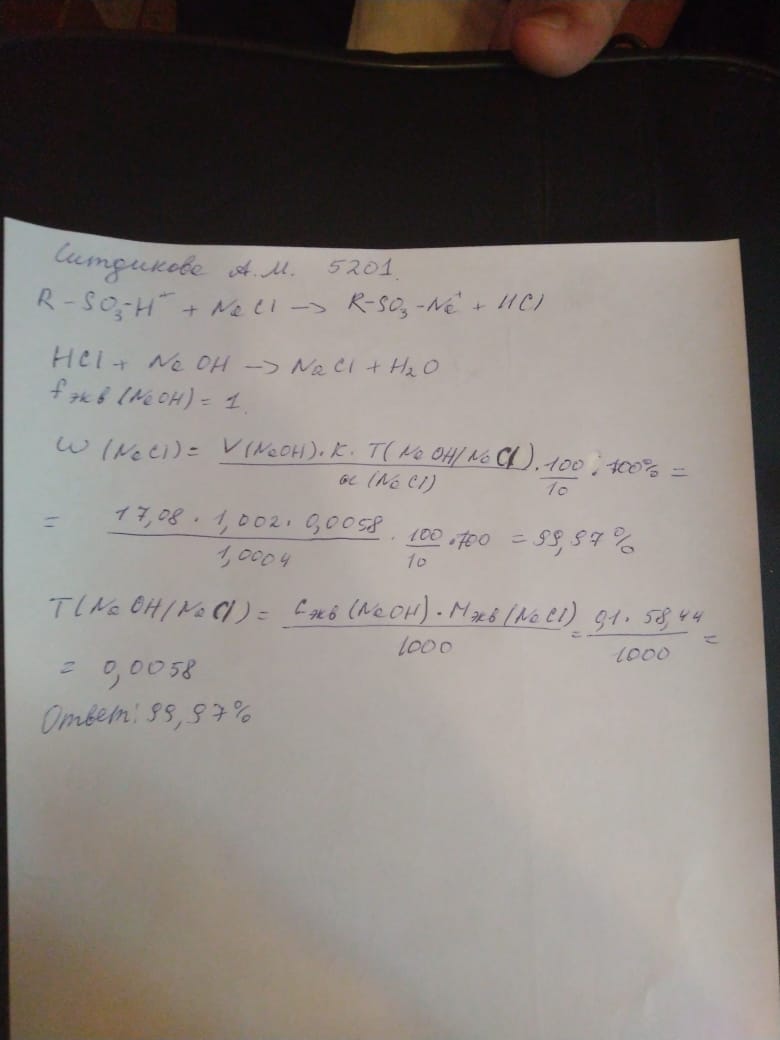 Ситдикова А.М. 5201.
R-SO₃-H⁺ + NaCl -> R-SO₃-Na⁺ + HCl
HCl + NaOH -> NaCl + H₂O
fэкв (NaOH) = 1.
W (NaCl) = V(NaOH)·K·T(NaOH/NaCl) / a(NaCl) · 100/10 · 100% =
= 17,08 · 1,002 · 0,0058 / 1,0004 · 100/10 · 100 = 99,97%
T(NaOH/NaCl) = Cэкв (NaOH) · Mэкв (NaCl) / 1000 = 0,1 · 58,44 / 1000 =
= 0,0058
Ответ: 99,97%